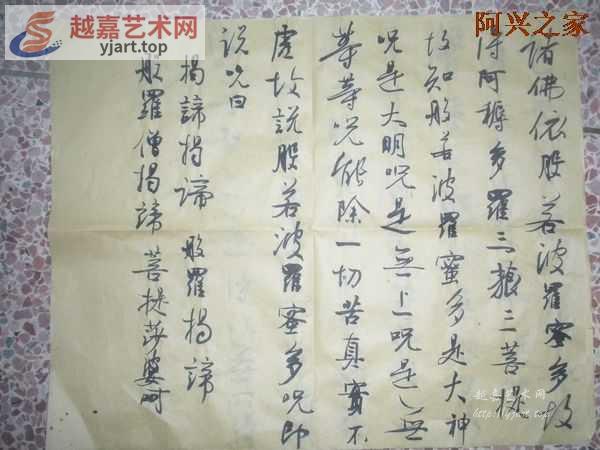 越嘉艺术网
yjart.top
阿兴之家
诸佛依般若波羅蜜多故
得阿耨多羅三藐三菩提
故知般若波羅蜜多是大神
咒是大明咒是無上咒是無
等等咒能除一切苦真實不
虚故説般若波羅蜜多咒即
说咒曰
揭諦揭谛 般羅揭諦
般羅僧揭諦菩提莎婆呵
越嘉艺术网
http://yjart.top